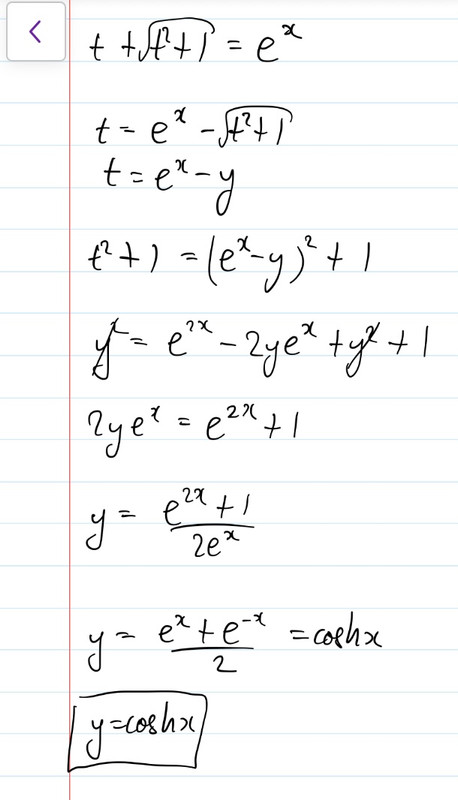 t + √(t² + 1) = eˣ
t = eˣ - √(t² + 1)
t = eˣ - y
t² + 1 = (eˣ - y)² + 1
y² = e²ˣ - 2yeˣ + y² + 1
2yeˣ = e²ˣ + 1
y = (e²ˣ + 1)/(2eˣ)
y = (eˣ + e⁻ˣ)/2 = coshx
y = coshx